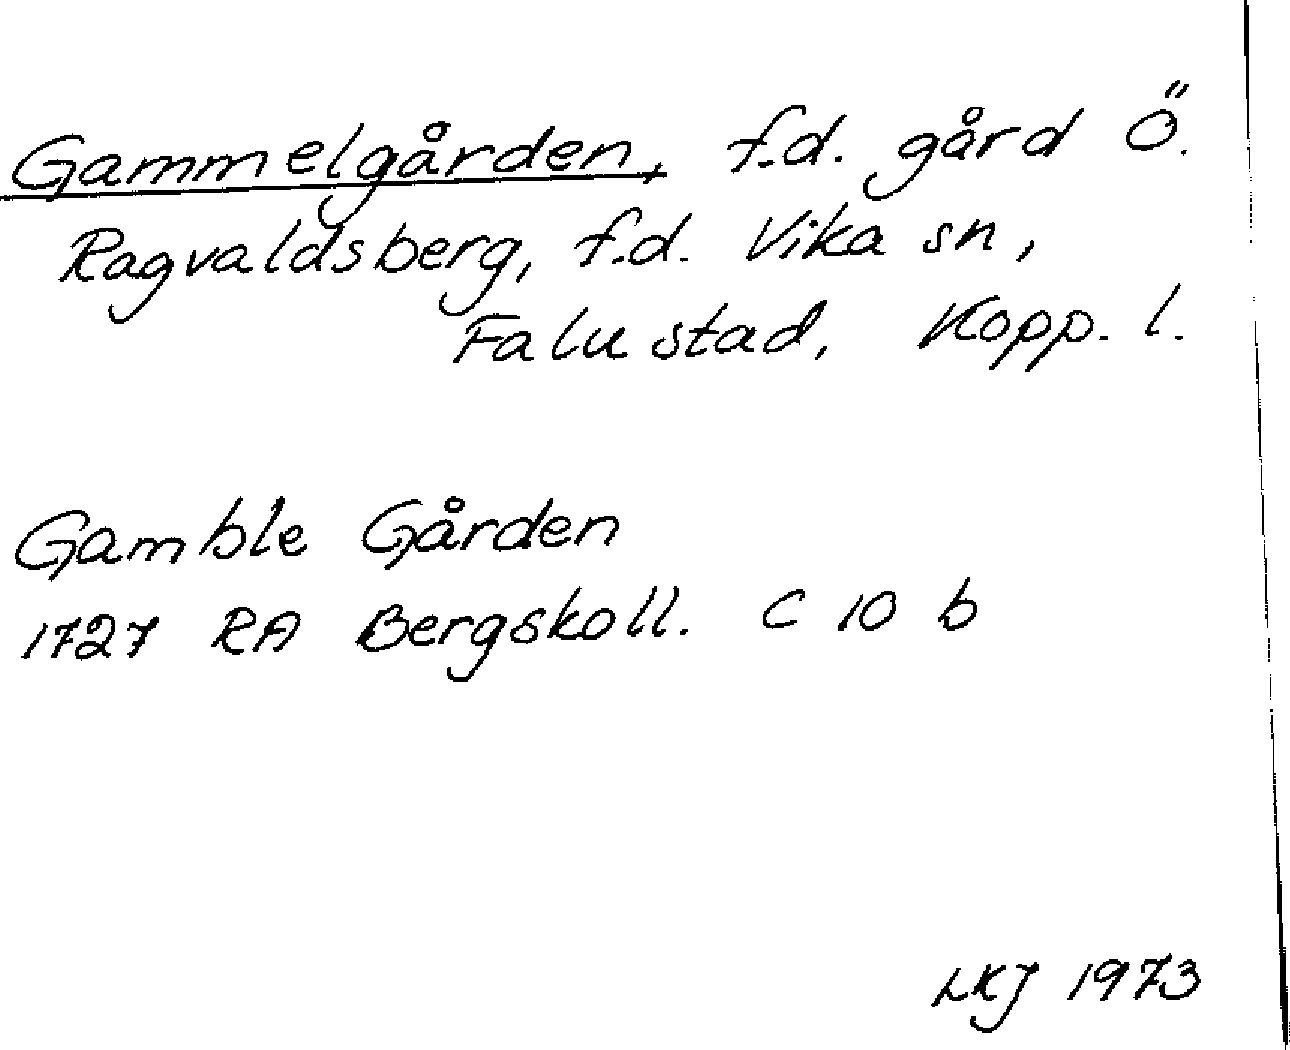 Gammelgården, f.d. gård Ö.
Ragvaldsberg, f.d. Vika sn,
Falu stad, Kopp. l.
Gamble Gården
1727 RA Bergskoll. C 10 b
LKJ 1973